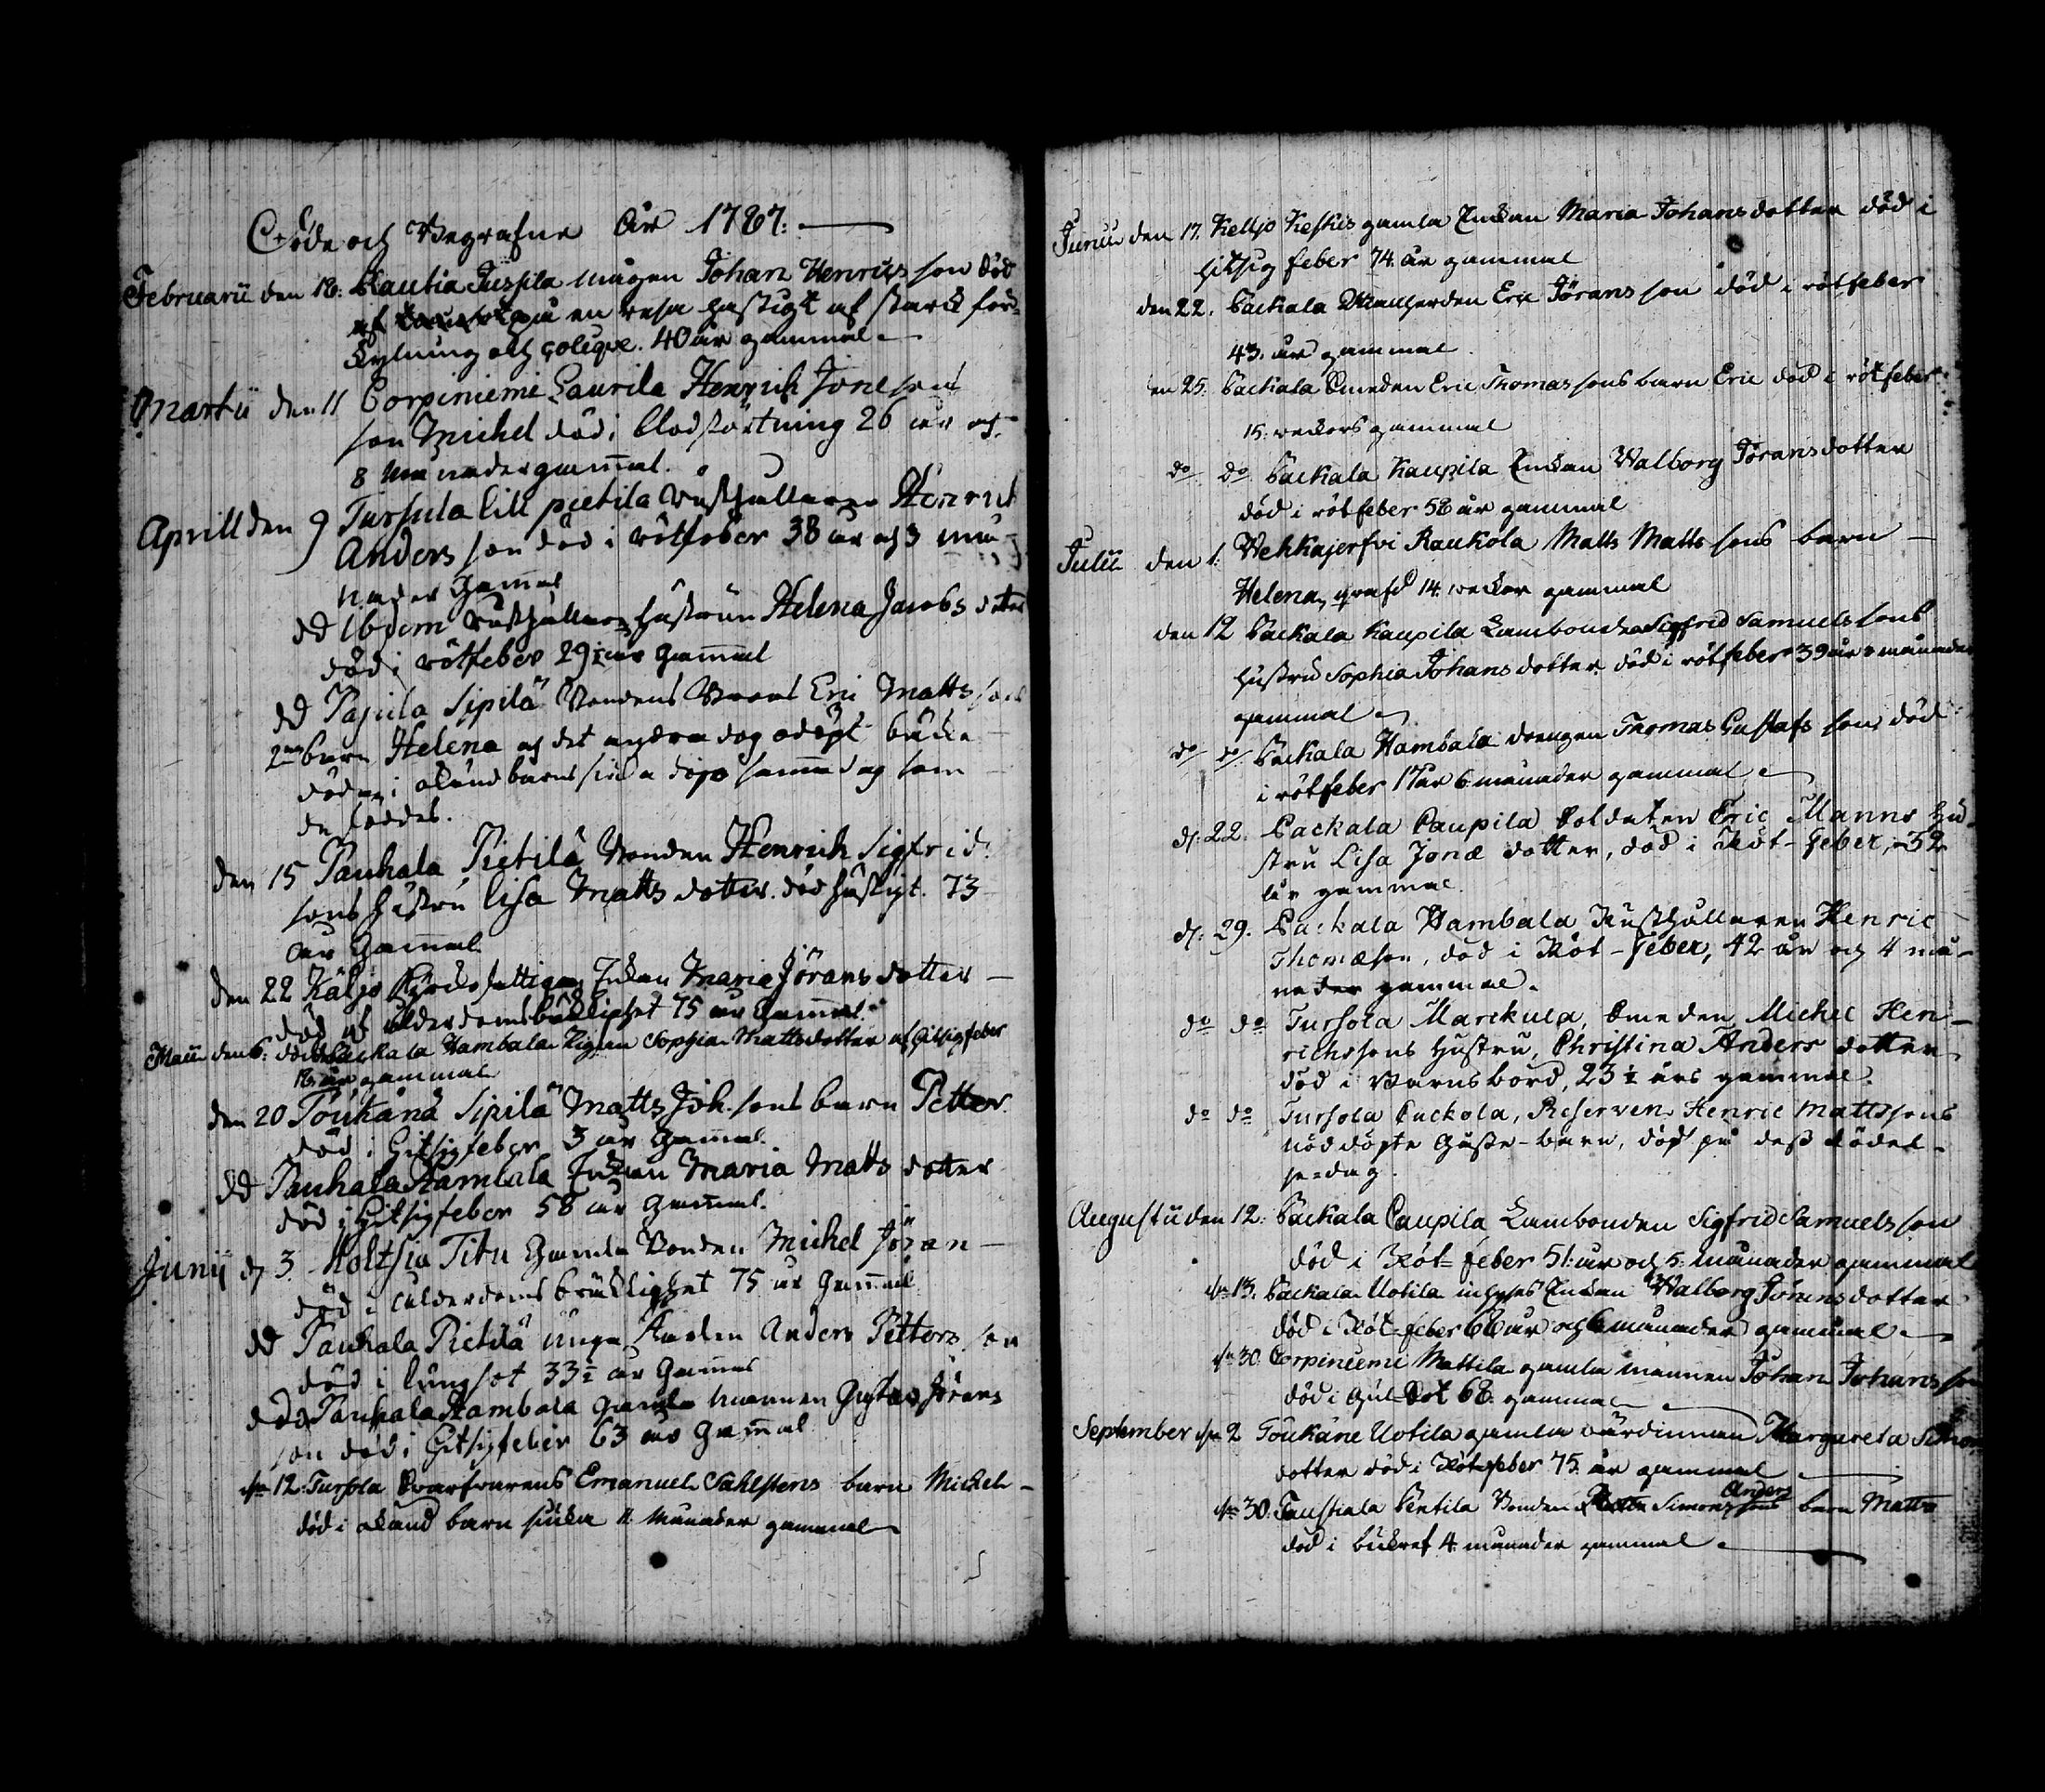 Döde och Begrafne År 1787:
Februarii den 18. Kautia Jussila mågen Johan Henricsson död
af på en resa hastigt af starck för-
kylning och colique. 40 år gammal
Martii den 11 Corpiniemi Laurila Henrich Jonæ sons
son Michel död i blodstörtning 26 år och
8 månader gammal.
Aprill den 9 Tursula lill pietila rusthållaren Henrich
Anders son död i rötfeber 38 år och 3 må-
nader Gammal
dd Ibidem rusthållarens hustrun Helena Jacobs dotter
död i rötfeber 29½ år Gammal
dd Pajula Sipilä Bondens Eric Matts sons
2ne barn Helena och det andra dog odöpt båda
döde i okänd barnsiuka dogo samma dag som
de föddes.
den 15 Pauhala Pietilä Bonden Henrich Sigfrids
sons hustru Lisa Matts dotter död hastigt. 73
år Gammal
den 22 Käljo Enkan Maria Jörans dotter
död af ålderdoms bräcklighet 75 år Gammal.
Maii den 6. död Packala Hambala Pigan Sophia Mattsdotter af hitsig feber
18. år gammal
den 20 Toukana Sipilä Matts Joh. sons barn Petter
död i hitsigfeber 3 år Gammal.
dd Pauhala Hambala Enkan Maria Matts dotter
död i hitsigfeber 58 år Gammal.
Junij d 3. Titu Gamla Bonden Michel Jöran
död i ålderdoms bräcklighet 75 år Gammal
dd Pauhala Pietilä unga Anders Petters son
död i lungsot 33½ år Gammal
dd Pauhala Hambala gamla mannen Gustav Jörans
son död i hitsigfeber 63 år Gammal
den 12. Tursola Emanuel Sahlstens barn Michel
död i okänd barn siuka 11 månader gammal
Junii den 17. Keljo Keskis gamla Enckan Maria Johansdotter död i
hitsig feber 74. år gammal
den 22. Packala Eric Jörans son död i rötfeber
43. år gammal
en 25. Packala Smeden Eric Thomassons barn Eric död i rötfeber
15. weckors gammal
do do Packala Kaupila Enckan Walborg Jöransdotter
död i rötfeber 58 år gammal
Julii den 1. Wehkajerfvi Raukola Matts Matts sons barn
Helena 14. weckor gammal
den 12 Packala Kaupila Lambonden Sigfrid Samuels sons
hustru Sophia Johans dotter död i rötfeber 39 år månader
gammal
do do Packala Hambala drengen Thomas Gustafs son, död
i rötfeber 17 år 6 månader gammal
d. 22. Packala Caupila Soldaten Eric Manns hu-
stru Lisa Jonæ dotter, död i Röt-feber, 32
år gammal.
d. 29. Packala Hambala Rusthållaren Henric
Thomæson, död i Röt-feber, 42 år och 4 må-
nader gammal.
do do Tursola Marckula, Smeden Michel Hen-
richssons hustru, Christina Anders dotter
död i Barnsbörd, 23½ års gammal.
do do Tursola Packola, Reserven Henric Mattssons
nöddöpte Gosse-barn, död på dess födel-
se-dag
Augustii den 12. Packala Caupila Lambonden Sigfrid Samuels son
död i Röt-feber 51. år och 5. månader gammal
den 13. Packala Uotila inhyses Enckan Walborg Jöransdotter
död i Röt-feber 66 år och 6 månader gammal
den 30. Corpiniemi Mattila gamla mannen Johan Johans son
död i 68. gammal
September den 2 Toukane Uotila gamla värdinnan Margareta Simon
dotter död i Rötfeber 75 år gammal
Anders
den 30. Pentila Bonden Simons sons barn Matts
död i bukref 4 månader gammal